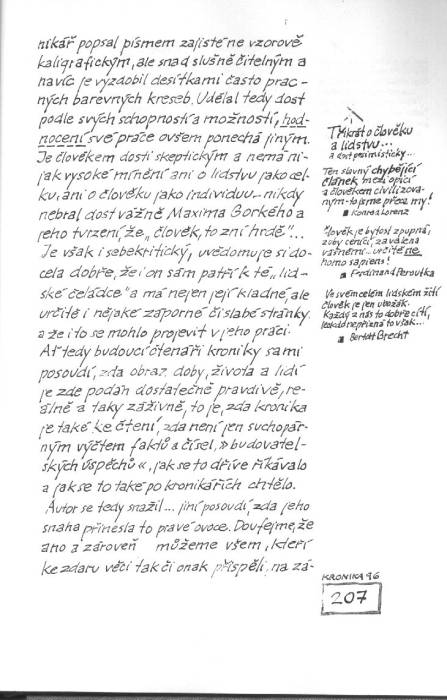 nikář popsal písmem zajisté ne vzorově
kaligrafickým, ale snad slušně čitelným a
navíc je vyzdobil desítkami často prac-
ných barevných kreseb. Udělal tedy dost
podle svých schopností a možností, hod-
nocení své práce ovšem ponechá jiným.
Je člověkem dosti skeptickým a nemá ni-
jak vysoké mínění ani o lidstvu jako cel-
ku, ani o člověku jako individuu – nikdy
nebral dost vážně Maxima Gorkého a
jeho tvrzení, že „člověk, to zní hrdě“...
Je však i sebekritický, uvědomuje si do-
cela dobře, že i on sám patří k té „lid-
ské čeládce“ a má nejen její kladné, ale
určitě i nějaké záporné či slabé stránky,
a že i to se mohlo projevit v jeho práci.
Ať tedy budoucí čtenáři kroniky sami
posoudí, zda obraz doby, života a lidí
je zde podán dostatečně pravdivě, re-
álně a taky záživně, to je, zda kronika
je také ke čtení, zda není jen suchopár-
ným výčtem faktů a čísel, »budovatel-
ských úspěchů«, jak se to dříve říkávalo
a jak se to také po kronikářích chtělo.
Autor se tedy snažil... jiní posoudí, zda jeho
snaha přinesla to pravé ovoce. Doufejme, že
ano a zároveň můžeme všem, kteří
ke zdaru věci tak či onak přispěli, na zá-
Třikrát o člověku
a lidstvu...
a dost pesimisticky...
Ten slavný chybějící
článek mezi opicí
a člověkem civilizova-
ným - to jsme přece my!
Konrad Lorenz
Člověk je bytost zpupná,
zuby cenící, zavalena
vášněmi... určitě ne
homo sapiens!
Ferdinand Peroutka
Ve svém celém lidském žití
člověk je jen ubožák.
Každý z nás to dobře cítí,
leckdo nepřizná to však...
Bertolt Brecht
KRONIKA 96
207